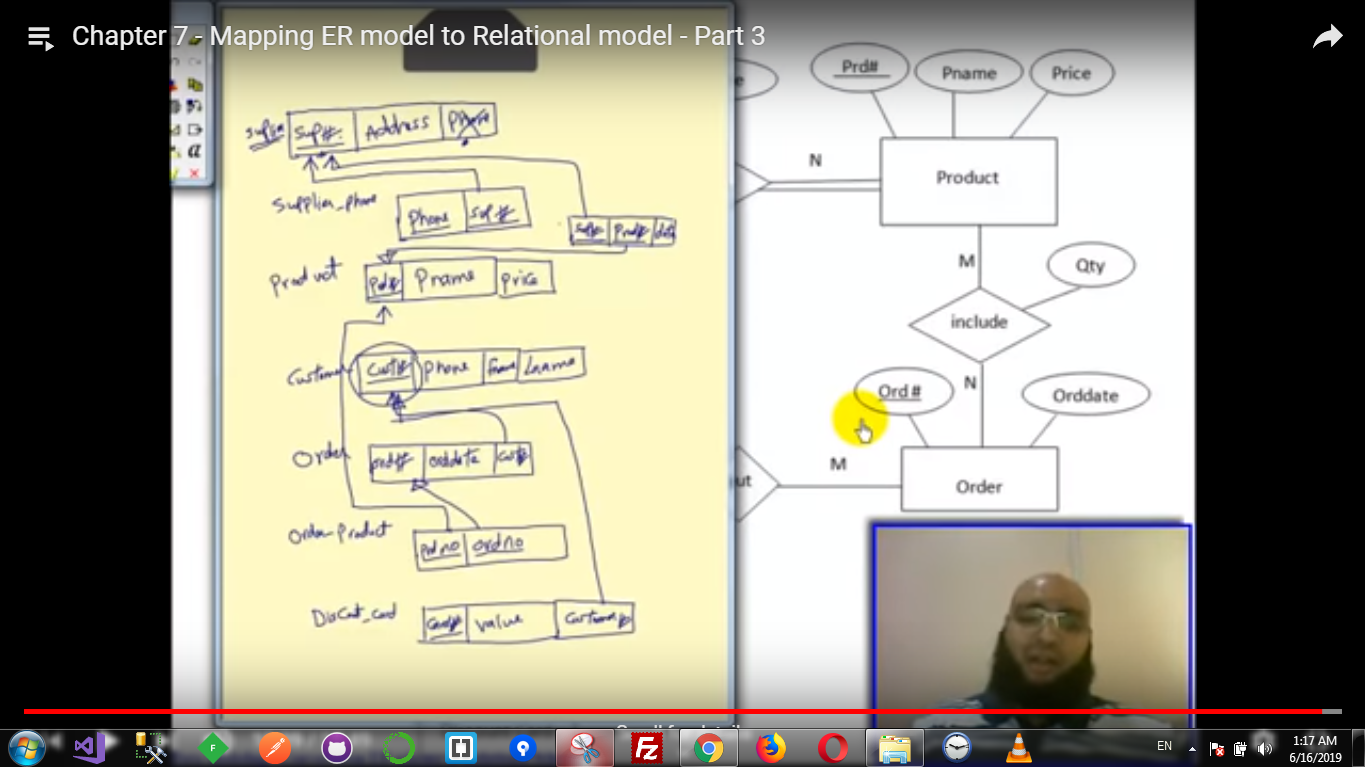 Chapter 7 - Mapping ER model to Relational model - Part 3
Sup#. Address Phone
Supplier_phone
Phone Sup#
Sup# Prod# date
Product
Pd# Pname Price
Customer Cust# Phone Fname Lname
Order ord# orddate Cust#
Order-Product
Prd no ord no
Card# Value
Prd# Pname Price
e
N
Product
M
Qty
include
N
Ord # Orddate
M
ut
Order
EN
1:17 AM
6/16/2019